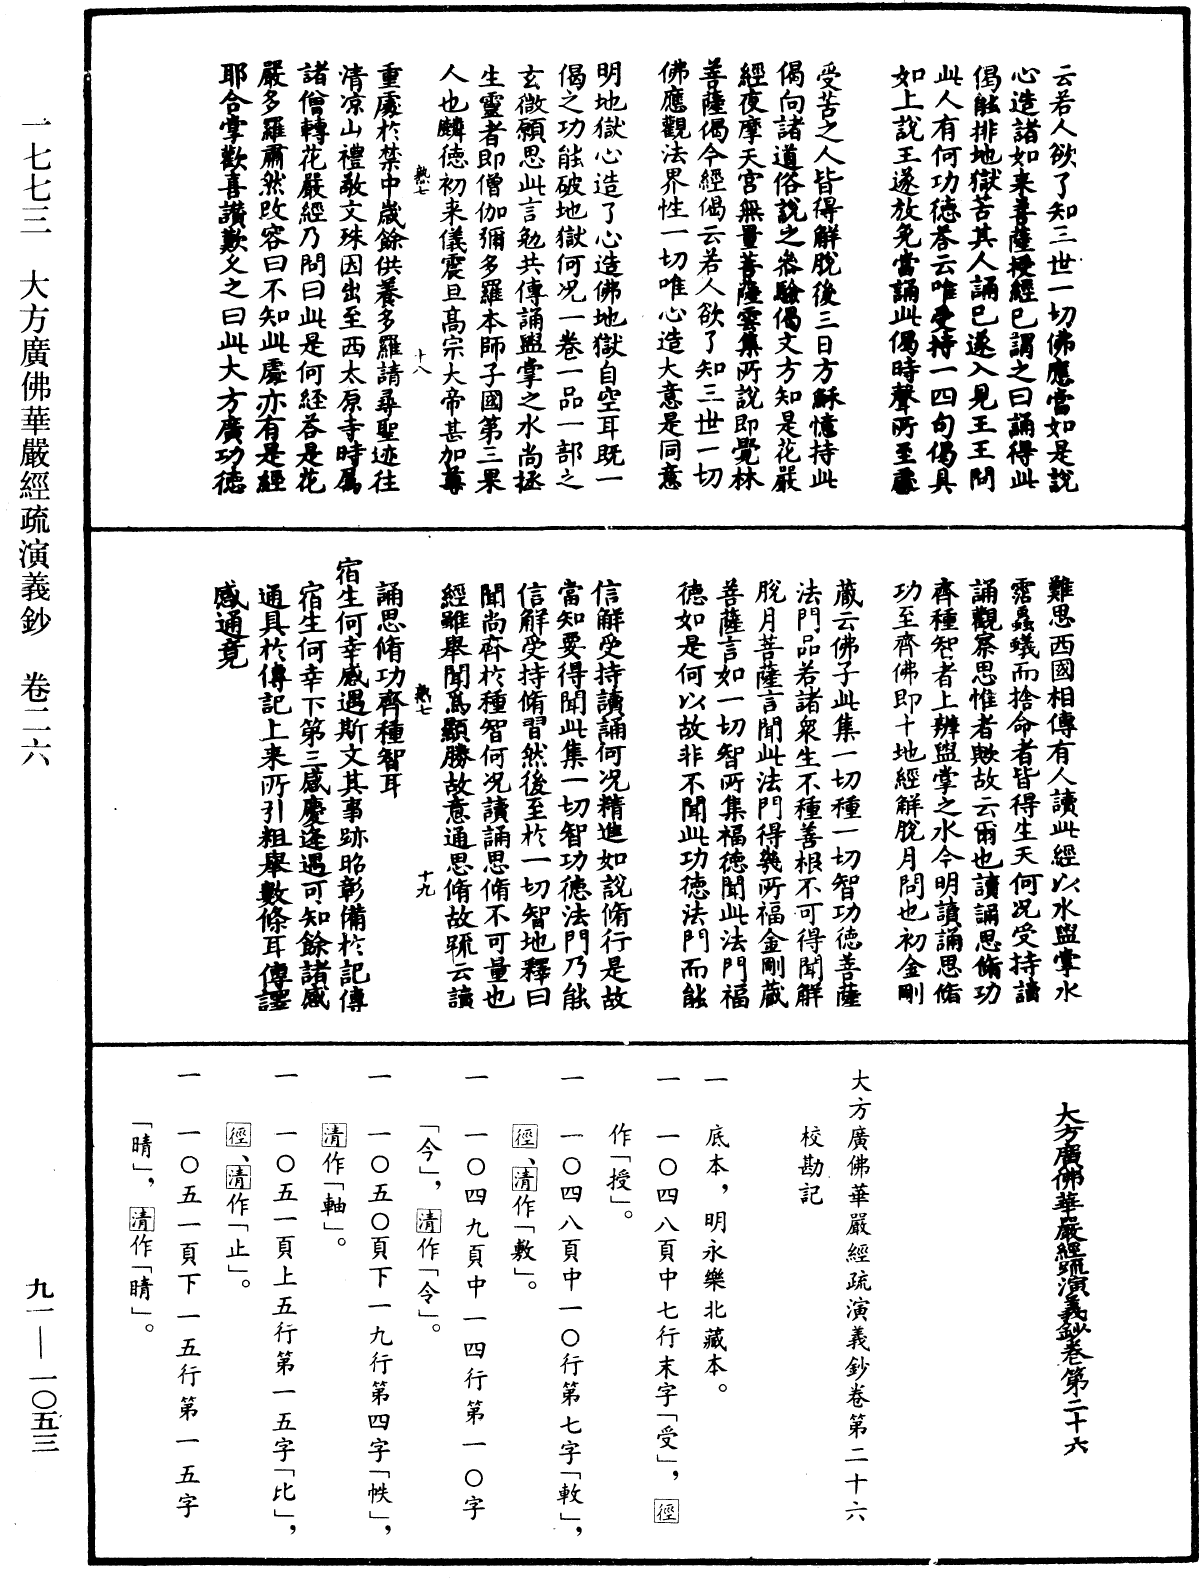 云若人欲了知三世一切佛應當如是說
心造諸如來菩薩授經已謂之曰誦得此
偈能排地獄苦其人誦已遂入見王王問
此人有何功德荅云唯受持一四句偈具
如上說王遂放免當誦此偈時聲所至處
受苦之人皆得解脫後三日方穌憶持此
偈向諸道俗說之叅驗偈文方知是花嚴
經夜摩天宮無量菩薩雲集所說即覺林
菩薩偈今經偈云若人欲了知三世一切
佛應觀法界性一切唯心造大意是同意
明地獄心造了心造佛地獄自空耳既一
偈之功能破地獄何况一卷一品一部之
玄微願思此言勉共傳誦盥掌之水尚拯
生靈者即僧伽彌多羅本師子國第三果
人也麟德初來儀震旦高宗大帝甚加尊
重處於禁中歲餘供養多羅請尋聖迹往
清凉山禮敬文殊因出至西太原寺時屬
諸僧轉花嚴經乃問曰此是何経荅是花
嚴多羅肅然改容曰不知此處亦有是經
耶合掌歡喜讚歎久之曰此大方廣功德
難思西國相傳有人讀此經以水盥掌水
霑蟲蟻而捨命者皆得生天何况受持讀
誦觀察思惟者歟故云爾也讀誦思脩功
齊種智者上辨盥掌之水今明讀誦思脩
功至齊佛即十地經解脫月問也初金剛
藏云佛子此集一切種一切智功德菩薩
法門品若諸衆生不種善根不可得聞解
脫月菩薩言聞此法門得幾所福金剛藏
菩薩言如一切智所集福德聞此法門福
德如是何以故非不聞此功德法門而能
信解受持讀誦何况精進如說脩行是故
當知要得聞此集一切智功德法門乃能
信解受持脩習然後至於一切智地釋曰
聞尚齊於種智何况讀誦思脩不可量也
經雖舉聞爲顯勝故意通思脩故䟽云讀
誦思脩功齊種智耳
宿生何幸感遇斯文其事跡昭彰備於記傳
宿生何幸下第三感慶逢遇可知餘諸感
通具於傳記上来所引粗舉數條耳傳譯
感通竟
大方廣佛華嚴經疏演義鈔卷第二十六
大方廣佛華嚴經疏演義鈔卷第二十六
校勘記
一　底本，明永樂北藏本。
一　一〇四八頁中七行末字「受」，徑
作「授」。
一　一〇四八頁中一〇行第七字「敕」，
徑、清作「敷」。
一　一〇四九頁中一四行第一〇字
「今」，清作「令」。
一　一〇五〇頁下一九行第四字「帙」，
清作「軸」。
一　一〇五一頁上五行第一五字「比」，
徑、清作「止」。
一　一〇五一頁下一五行第一五字
「晴」，清作「睛」。
一七七三　大方廣佛華嚴經疏演義鈔　卷二六
九一—一〇五三
十八
十九